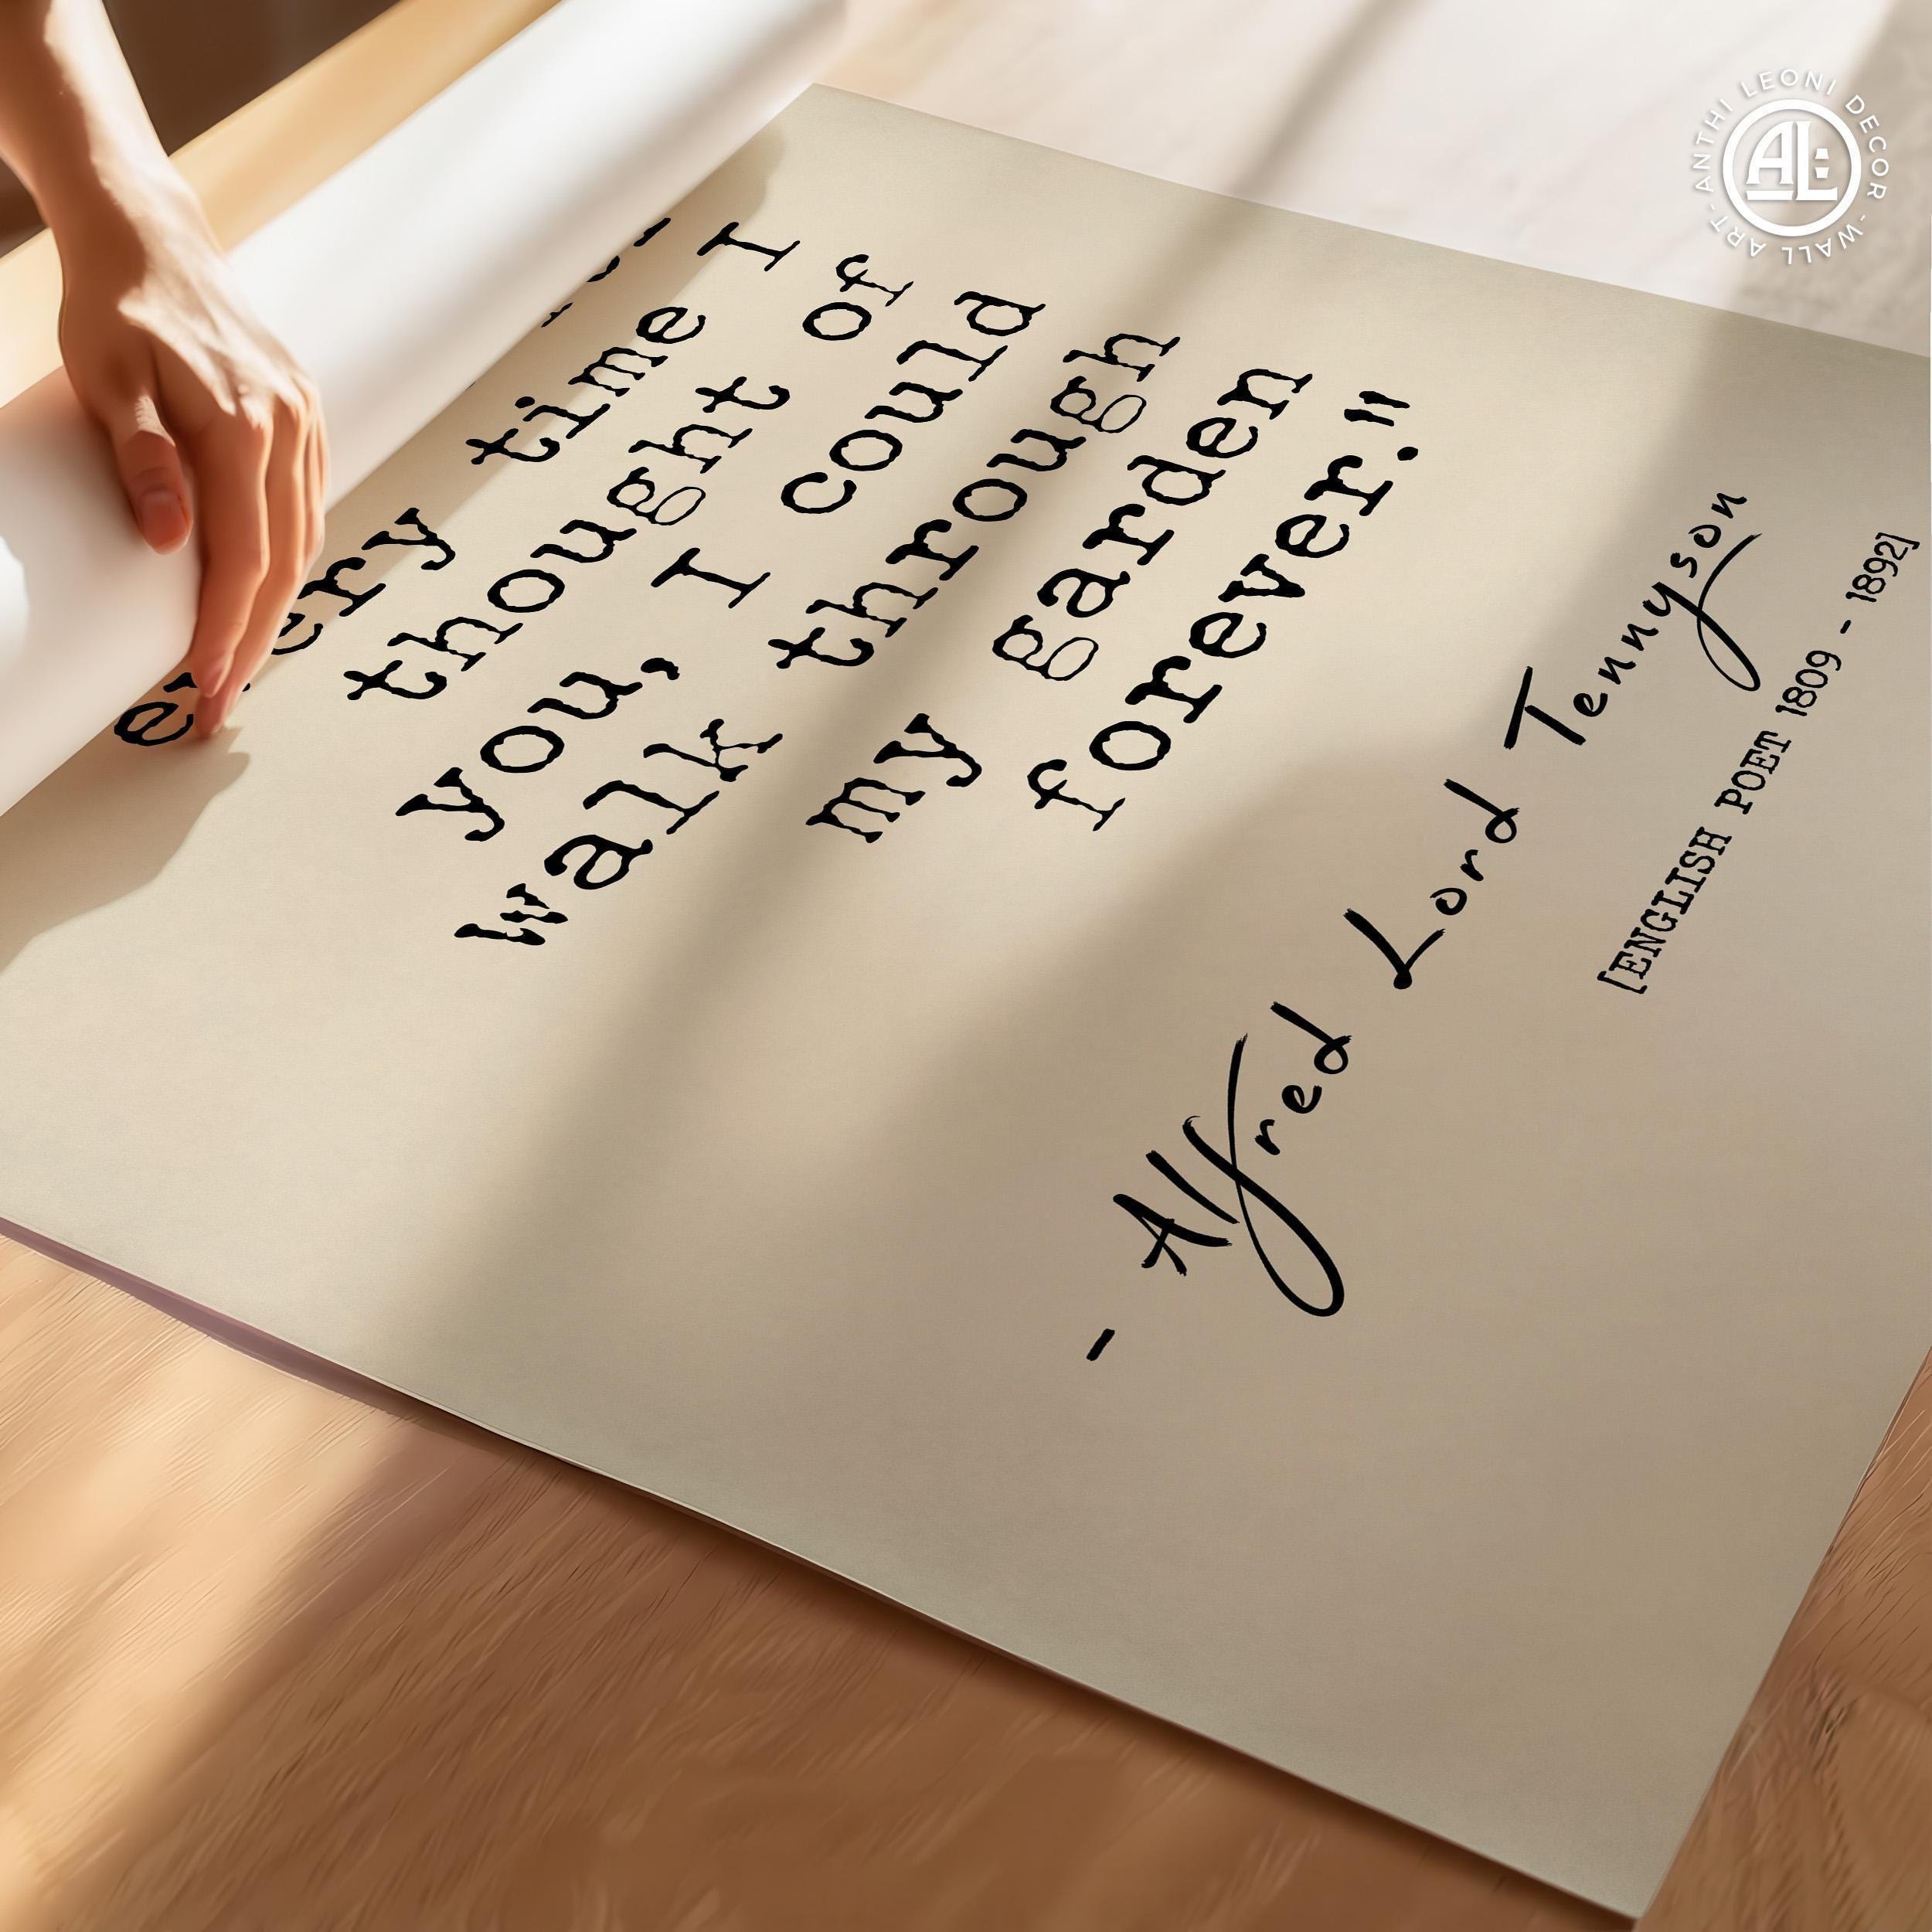 every time I
thought of
you, I could
walk through
my garden
forever."
- Alfred Lord Tennyson
[ENGLISH POET 1809 - 1892]
ANTHI LEONI DECOR - WALL ART -
AL